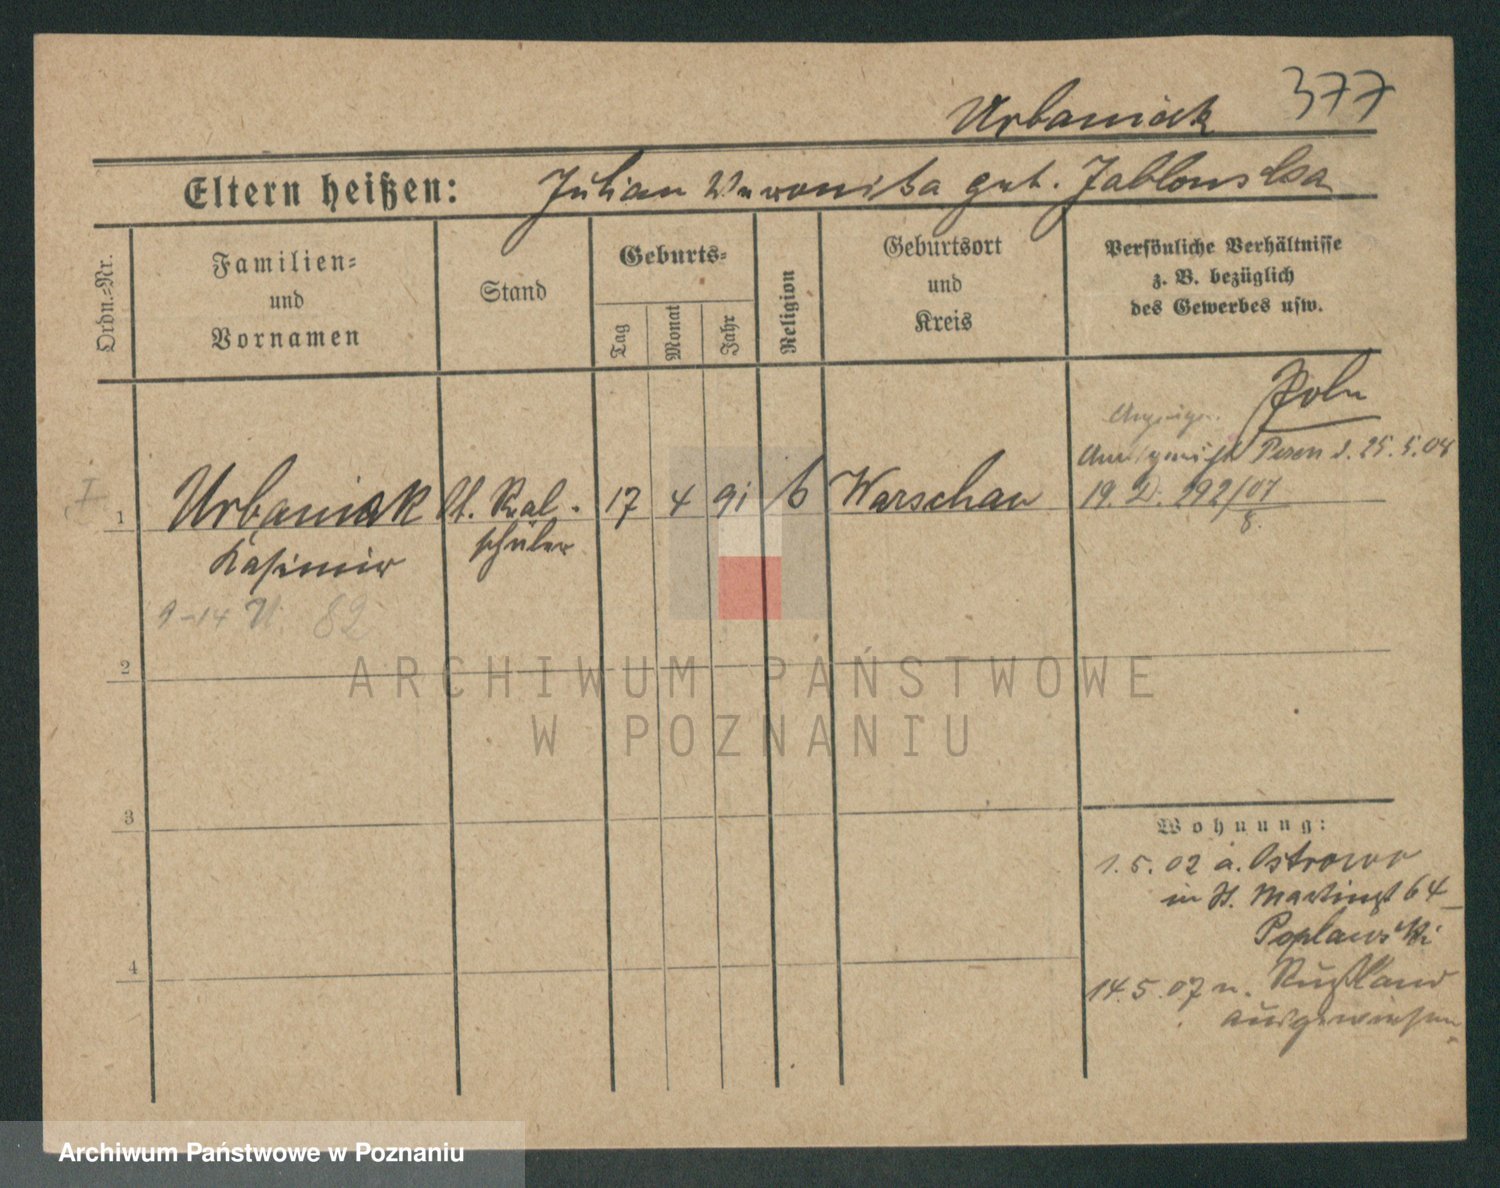 377
Urbaniak
Eltern heißen: Julian Weronika geb. Jablonska
Ordn.-Nr.
Familien-
und
Vornamen
Stand
Geburts-
Tag
Monat
Jahr
Religion
Geburtsort
und
Kreis
Persönliche Verhältnisse
z. B. bezüglich
des Gewerbes usw.
Pole
Posen d. 25.5.08
19. D. 292/07
8.
I
1 Urbaniak 17 4 91 Warschau
schüler
Kasimir
9-14 U. 82
2
3
4
Wohnung:
1.5.02 a. Ostrowo
in St. Martinst 64
Poplawski
14.5.07 n. Rußland
ausgewiesen
ARCHIWUM PAŃSTWOWE
W POZNANIU
Archiwum Państwowe w Poznaniu